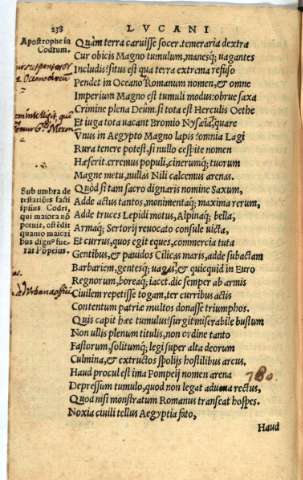 238 LVCANI
Apostrophe in
Codrum.
Quàm terra caruisse socer. temeraria dextra
Cur obicis Magno tumulum, manesq; vagantes
Includis? situs est qua terra extrema refuso
Pendet in Oceano Romanum nomen, & omne
Imperium Magno est tumuli modus: obrue saxa
Crimine plena Deûm. si tota est Herculis Oethe
Et iuga tota vacant Bromio Nyseia; quare
Vnus in Aegypto Magno lapis? omnia Lagi
Rura tenere potest, si nullo cespite nomen
Haeserit. erremus populi, cinerumq; tuorum
Magne metu, nullas Nili calcemus arenas.
Sub umbra de
testationis facti
ipsius Codri,
qui maiora nō
potuit, ostēdit
quanto maiori
bus dignus fue
rat Pompeius.
Quòd si tam sacro dignaris nomine Saxum,
Adde actus tantos, monimentaq; maxima rerum,
Adde truces Lepidi motus, Alpinaq; bella,
Armaq; Sertorij reuocato consule victa,
Et currus, quos egit eques, commercia tuta
Gentibus, & pauidos Cilicas maris, adde subactam
Barbariem, gentesq; vagas, & quicquid in Euro
Regnorum, boreaq; iacet. dic semper ab armis
Ciuilem repetisse togam, ter curribus actis
Contentum patriæ multos donasse triumphos.
Quis capit hæc tumulus? surgit miserabile bustum
Non ullis plenum titulis, non ordine tanto
Fastorum, solitumq; legi super alta deorum
Culmina, & extructos spolijs hostilibus arcus,
Haud procul est ima Pompeij nomen arena 780.
Depressum tumulo, quod non legat aduena rectus,
Quod nisi monstratum Romanus transeat hospes.
Noxia ciuili tellus Aegyptia fato,
Haud